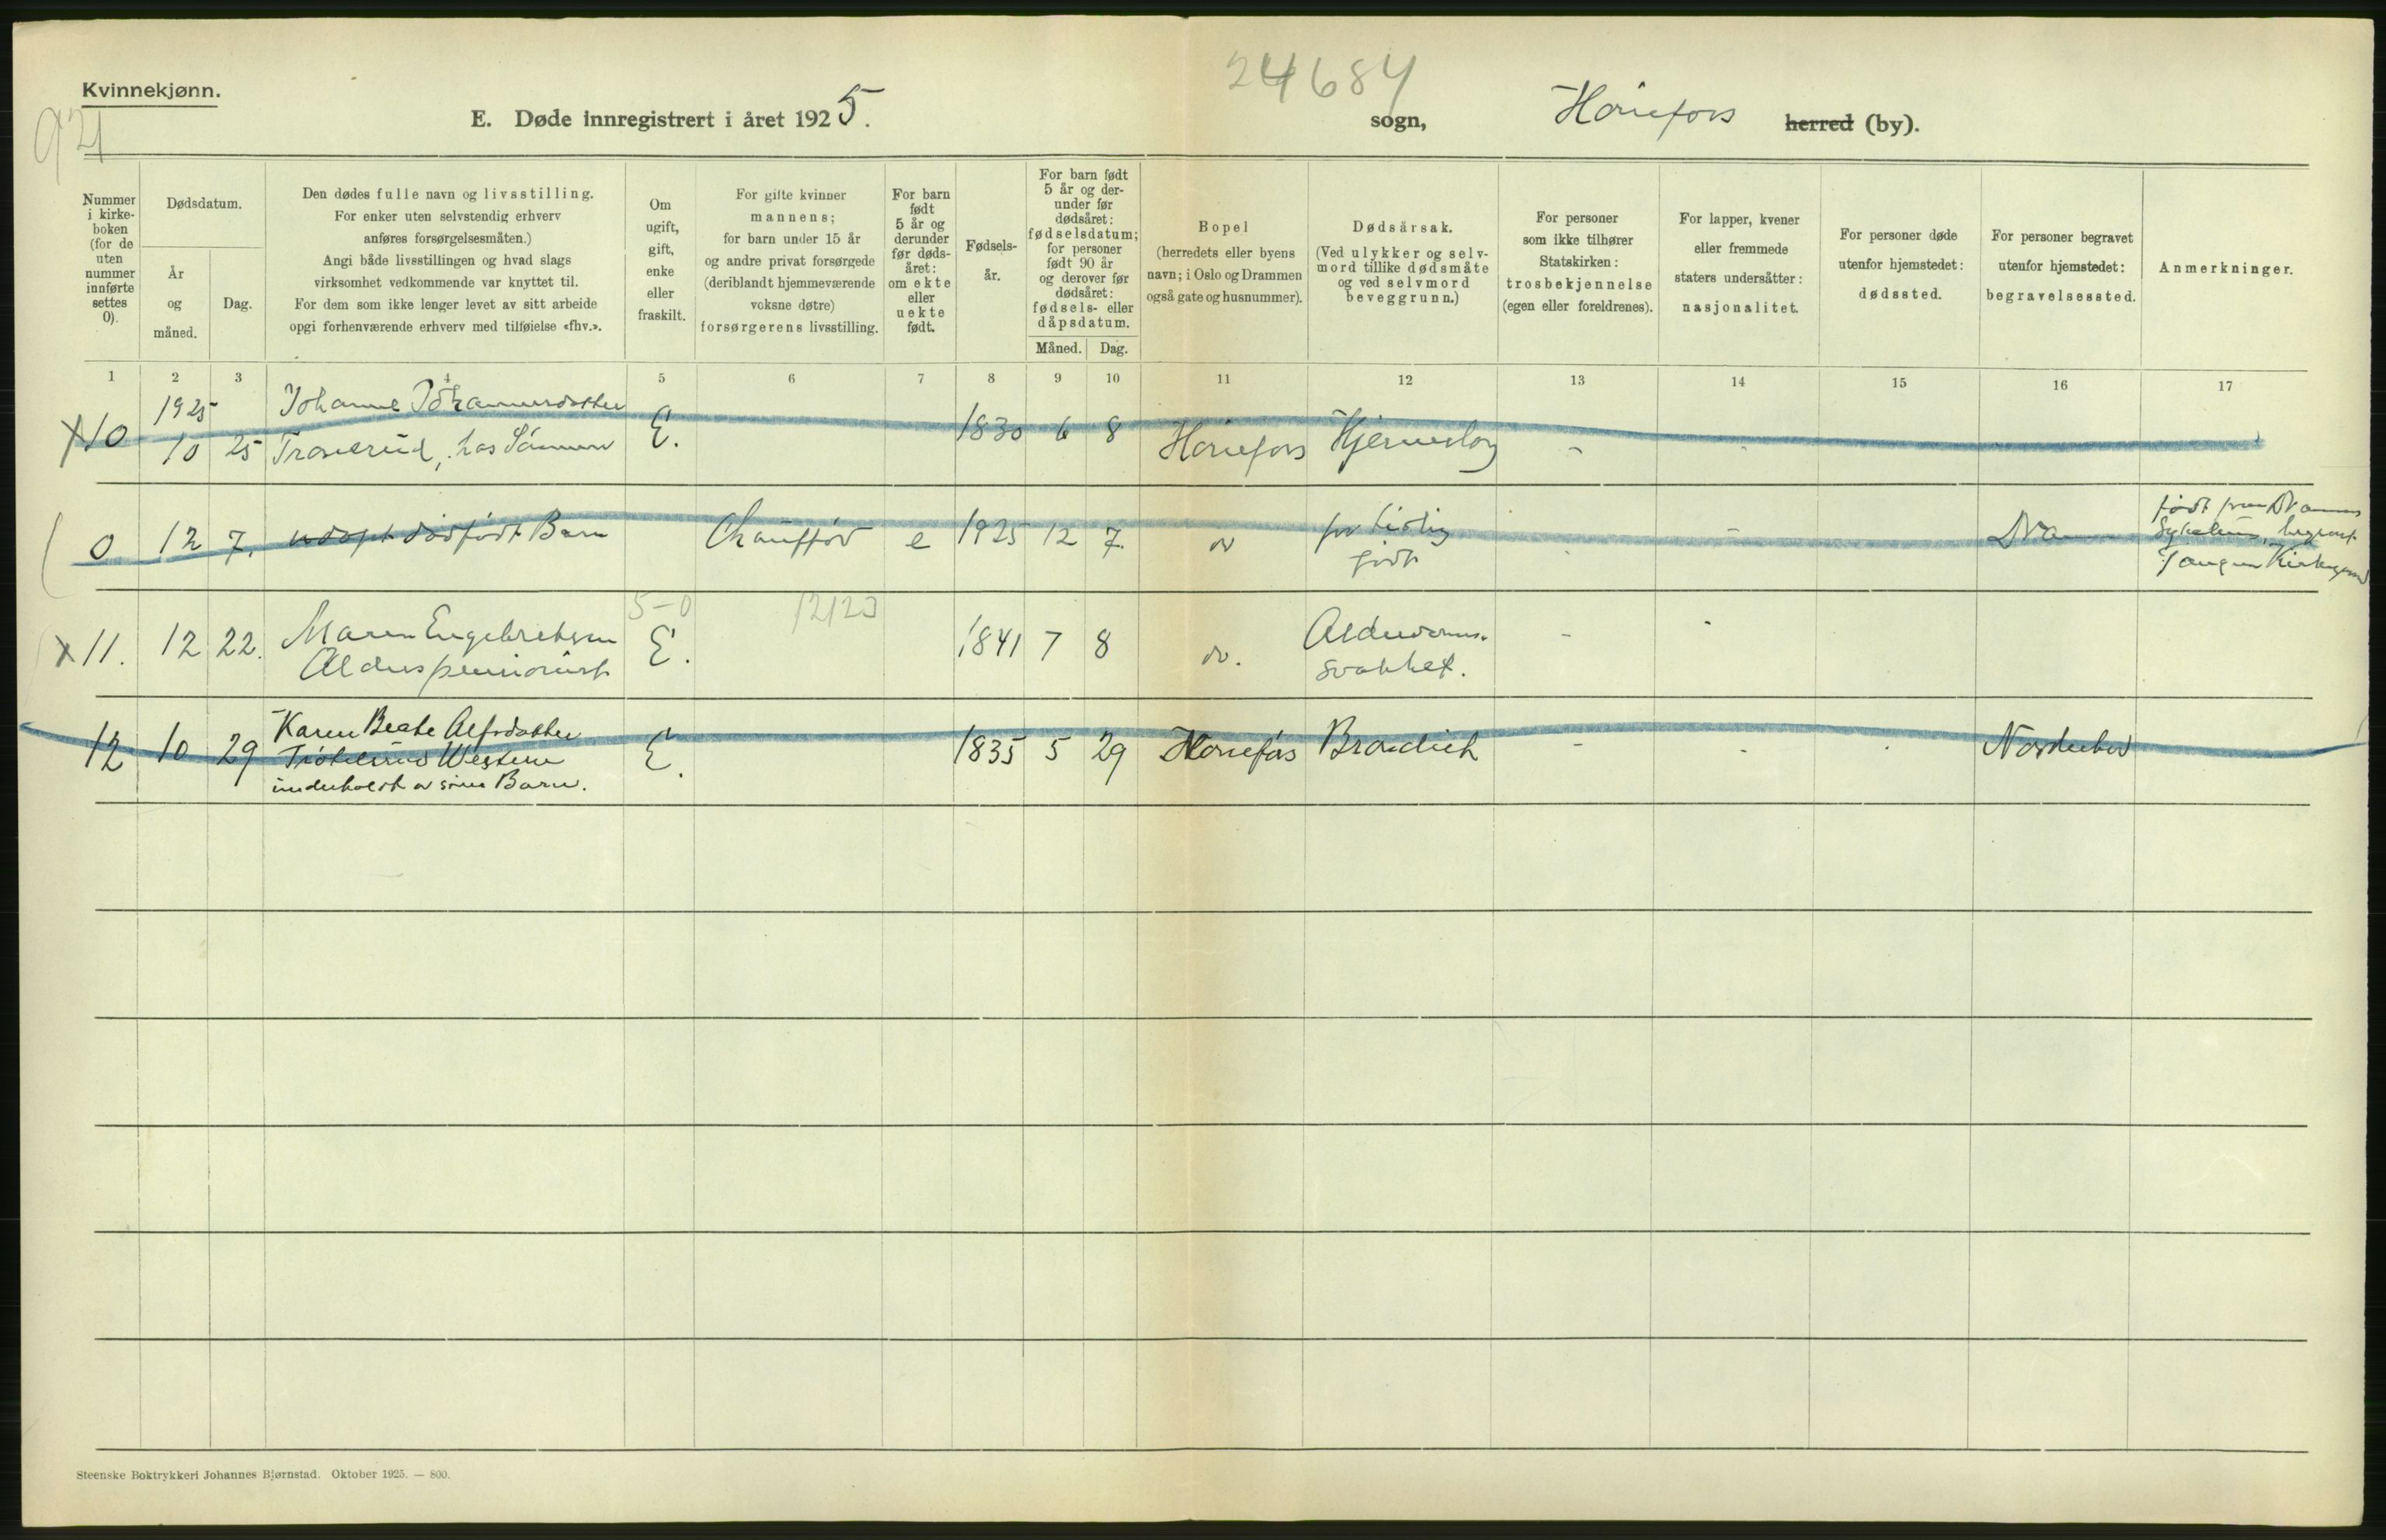 Kvinnekjønn.
921
24684
E. Døde innregistrert i året 1925.
sogn, Hønefoss herred (by).
Nummer
i kirke-
boken
(for de
uten
nummer
innførte
settes
0).
Dødsdatum.
År
og
måned.
Dag.
Den dødes fulle navn og livsstilling.
For enker uten selvstendig erhverv
anføres forsørgelsesmåten.)
Angi både livsstillingen og hvad slags
virksomhet vedkommende var knyttet til.
For dem som ikke lenger levet av sitt arbeide
opgi forhenværende erhverv med tilføielse «fhv.».
Om
ugift,
gift,
enke
eller
fraskilt.
For gifte kvinner
mannens;
for barn under 15 år
og andre privat forsørgede
(deriblandt hjemmeværende
voksne døtre)
forsørgerens livsstilling.
For barn
født
5 år og
derunder
før døds-
året:
om ekte
eller
uekte
født.
Fødsels-
år.
For barn født
5 år og der-
under før
dødsåret:
fødselsdatum;
for personer
født 90 år
og derover før
dødsåret:
fødsels- eller
dåpsdatum.
Måned. Dag.
Bopel
(herredets eller byens
navn; i Oslo og Drammen
også gate og husnummer).
Dødsårsak.
(Ved ulykker og selv-
mord tillike dødsmåte
og ved selvmord
beveggrunn.)
For personer
som ikke tilhører
Statskirken:
trosbekjennelse
(egen eller foreldrenes).
For lapper, kvener
eller fremmede
staters undersåtter:
nasjonalitet.
For personer døde
utenfor hjemstedet:
dødssted.
For personer begravet
utenfor hjemstedet:
begravelsessted.
Anmerkninger.
1 2 3 4 5 6 7 8 9 10 11 12 13 14 15 16 17
1925 Johanne Johannesdatter
x10 10 25 Tranerud, hos Sønnen E. 1830 6 8 Hønefoss Hjerneslag - -
0 12 7. udøpt dødfødt Barn Chauffør e 1925 12 7. do for tidlig - - Dra
født
født paa Drammens
Sykehus, begravet
Tangen Kirkegaard
5-0 12123
x11. 12 22. Maren Engebretsen E. 1841 7 8 do. Alderdoms- - -
Alderspensionist svakhet.
Karen Beate Alfsdatter
12 10 29 Western E. 1835 5 29 Hønefoss Bronchit - - Norderhov
underholdt av sine Barn.
Steenske Boktrykkeri Johannes Bjørnstad. Oktober 1925. — 800.